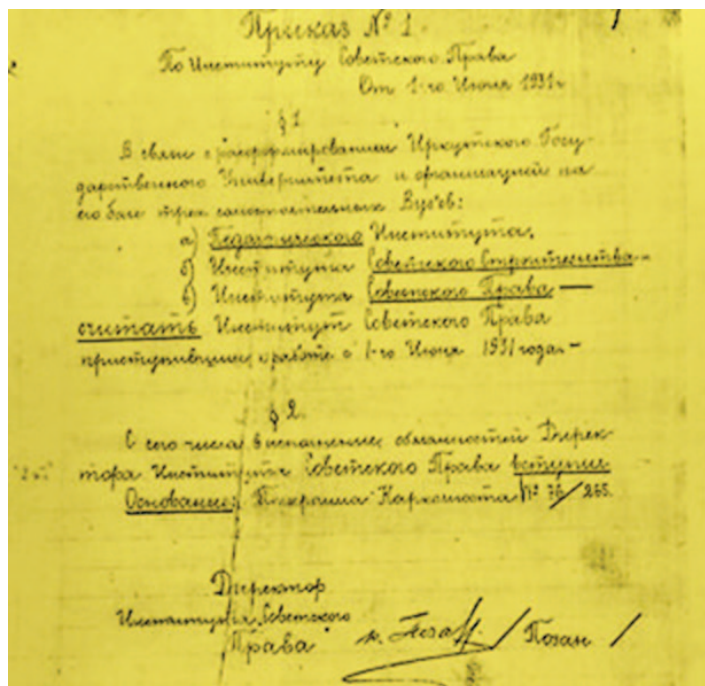 Приказ № 1.
По Институту Советского Права
От 1-го Июня 1931 г.
§ 1
В связи с расформированием Иркутского Госу-
дарственного Университета и организацией на
его базе трех самостоятельных Вузов:
а) Педагогического Института.
б) Института Советского Строительства –
в) Института Советского Права —
считать Институт Советского Права
приступившим к работе с 1-го Июня 1931 года. –
§ 2.
С сего числа в исполнение обязанностей Дирек-
тора Института Советского Права вступил
Основание: Наркомюста № 76/265.
Директор
Института Советского
Права / /